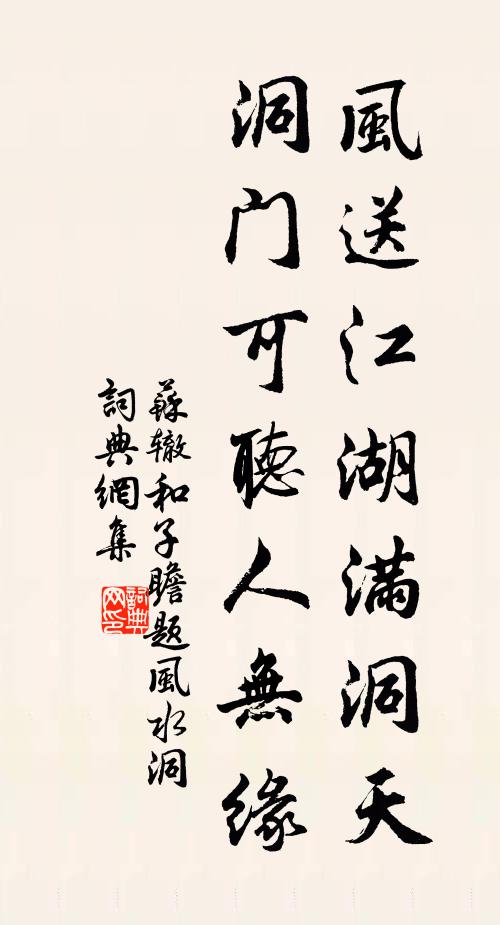 風送江湖滿洞天
洞门可聽人無緣
蘇辙和子瞻题風水洞
詞典網集
詞典网印